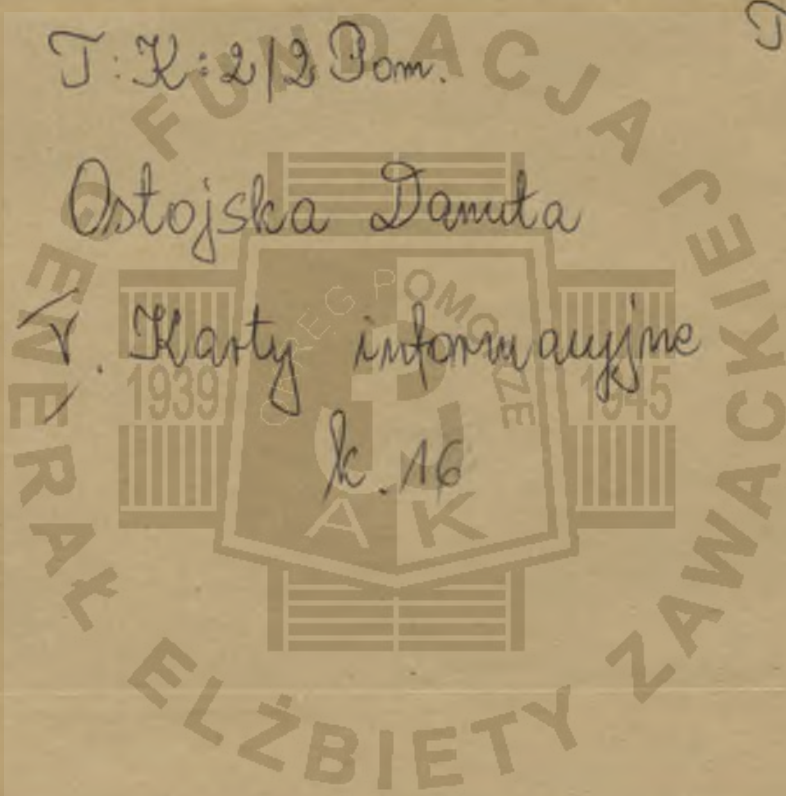 T:K:2/2 Pom.
Ostojska Danuta
V. Karty informacyjne
k. 16
FUNDACJA GENERAŁ ELŻBIETY ZAWACKIEJ
OKRĘG POMORZE
1939 1945
AK